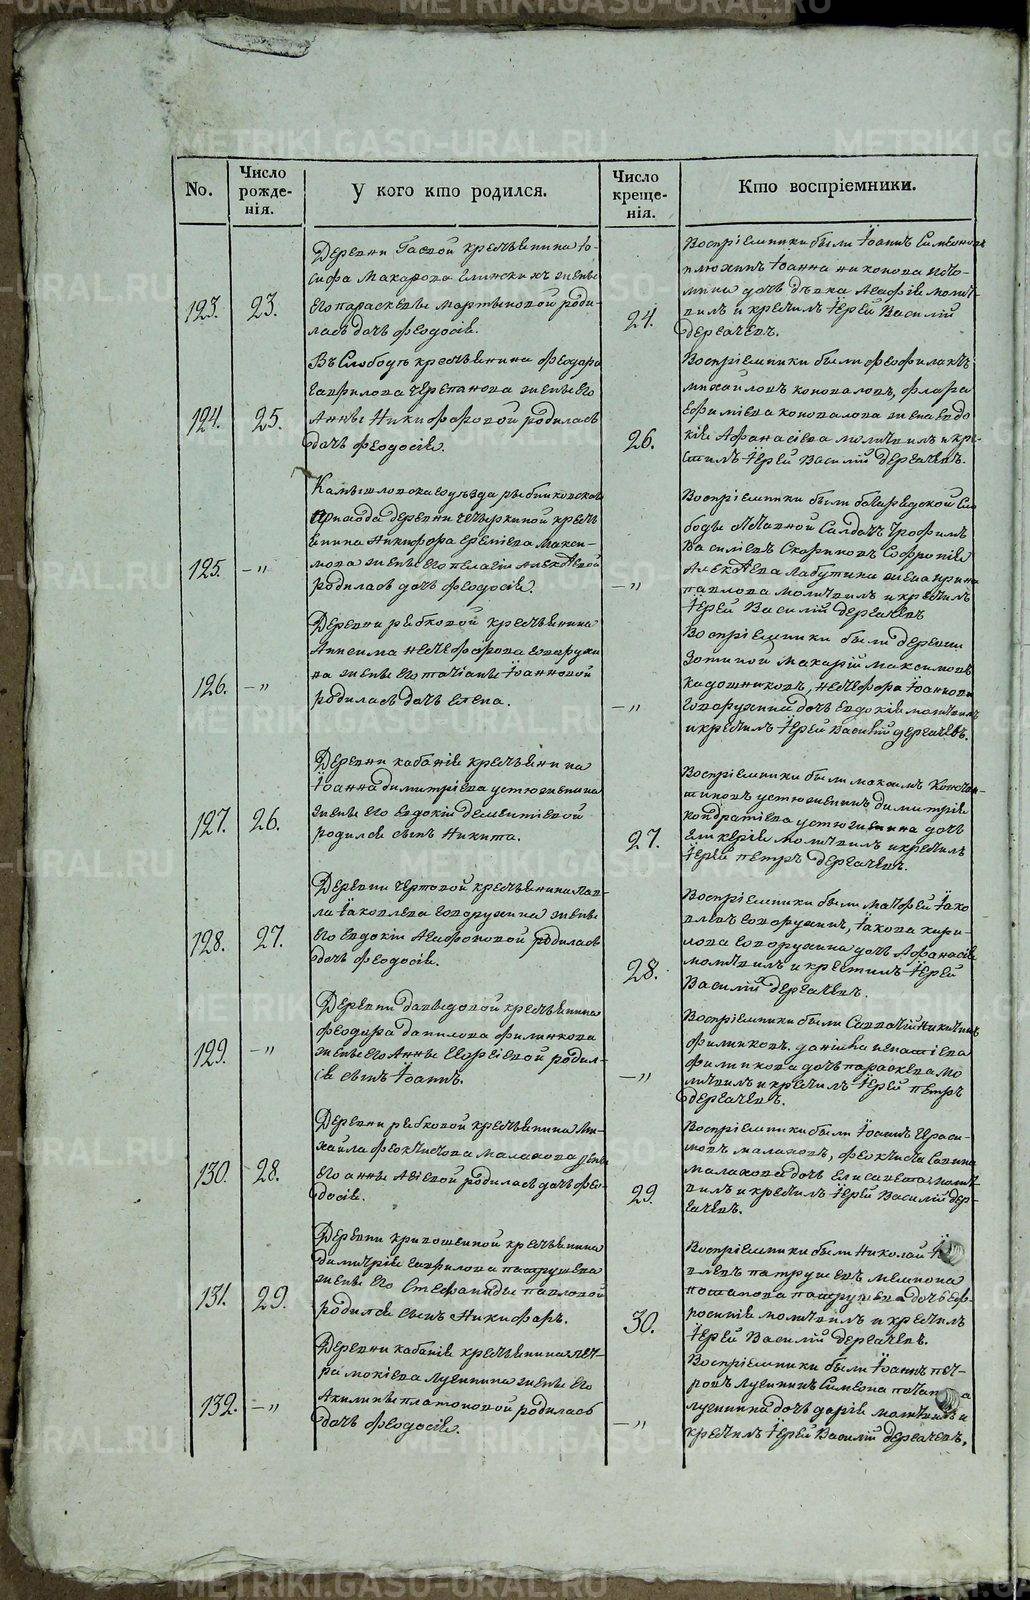 METRIKI.GASO-URAL.RU
No.
Число рожде-нія.
У кого кто родился.
Число креще-нія.
Кто воспріемники.
123.
23.
Деревни Гаевой крестьянина Іо
сифа Макарова Глинскихъ женѣ
его параскевѣ мартыновой роди
лась дочь Феодосія.
24.
Воспріемники были Іоаннъ Симеоновъ
Іоанна никонова
дочь дѣвка Агафія молит-
вилъ и крестилъ Іерей Василій
дергачевъ.
124.
25.
Въ Слободѣ крестьянина Феодора
Гаврилова черепанова женѣ его
Аннѣ Никифоровой родилась
дочь Феодосія.
26.
Воспріемники были Феофилактъ
михайловъ коновалов, флора
Ефиміева коновалова жена Евдо
кія Афанасіева молитвилъ и кре-
стилъ Іерей Василій дергачевъ.
125.
—"
Камышловскаго уѣзда рыбниковской
прихода деревни четыркиной кресть
янина Никифора Еремѣева Макси-
мова женѣ его пелагіи Алексѣевой
родилась дочь Феодосія.
—"
Воспріемники были Сло
боды отставной Салдатъ трофимъ
Василіевъ Скорыновъ Софронія
Алексѣева Лабутина жена ирина
павлова молитвилъ и крестилъ
Іерей Василій Дергачевъ
126.
—"
Деревни рыбковой крестьянина
Анисима нестефорова говорухи
на женѣ его татіанѣ Іоанновой
родилась дочь Елена.
—"
Воспріемники были деревни
Зотиной Макарій Максимовъ
кадошниковъ, Нестефора Іоаннова
Говорухина дочь Евдокія молитвилъ
и крестилъ Іерей Василій дергачевъ.
127.
26.
Деревни кабанія крестьянина
Іоанна димитріева устюжанина
женѣ его Евдокіи Дементіевой
родился сынъ Никита.
27.
Воспріемники были максимъ констан-
тиновъ устюжанинъ димитрія
кондратіева устюжанина дочь
Гликерія молитвилъ и крестилъ
Іерей петръ дергачевъ.
128.
27.
Деревни чертовой крестьянина пав-
ла Іаковлева говорухина женѣ
его Евдокіи Агафоновой родилась
дочь Феодосія.
28.
Воспріемники были матфей Іако
влевъ говорухинъ, Іакова кири-
лова говорухина дочь Афанасія
молитвилъ и крестилъ Іерей
Василій дергачевъ.
129.
—"
Деревни давыдовой крестьянина
Феодора данилова филинкова
женѣ его Аннѣ Георгіевой родил-
ся сынъ Іоаннъ.
—"
Воспріемники были Савватій Никитинъ
филинковъ. даніила игнатіева
филинкова дочь параскева мо
литвилъ и крестилъ Іерей петръ
дергачевъ.
130.
28.
Деревни рыбковой крестьянина Ми-
хайла Феоктистова малахова женѣ
его аннѣ Авіевой родилась дочь Фео-
досія.
29.
Воспріемники были Іоаннъ Гераси-
мовъ малаховъ, Феоктиста Саввина
малахова дочь Елисавета молит-
вилъ и крестилъ Іерей Василій дер-
гачевъ.
131.
29.
Деревни кривошеиной крестьянина
димитрія гаврилова патрушева
женѣ его Стефанидѣ павловой
родился сынъ Никифоръ.
30.
Воспріемники были Николай
влевъ патрушевъ
потапова патрушева дочь Еф-
росинія молитвилъ и крестилъ
Іерей Василій дергачевъ.
132.
—"
Деревни кабанія крестьянина пет-
ра мокіева лузинина женѣ его
Акилинѣ платоновой родилась
дочь Феодосія.
—"
Воспріемники были Іоаннъ пет-
ровъ лузининъ Симеона
лузинина дочь дарія молитвилъ и
крестилъ Іерей Василій дергачевъ.